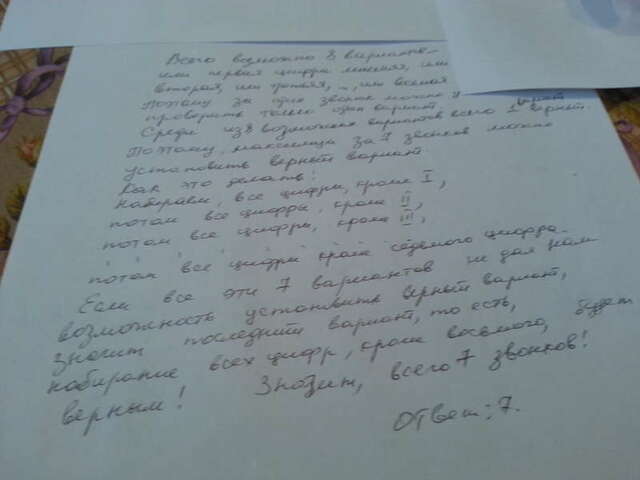 Всего возможно 8 вариантов –
или первая цифра лишняя, или
вторая, или третья, ..., или восьмая
Поэтому за один звонок можно
проверить только один вариант.
Среди из 8 возможных вариантов всего 1 верный.
Поэтому, максимум за 7 звонков можно
установить верный вариант.
Как это делать?
Набираем, все цифры, кроме I,
потом все цифры, кроме II,
потом все цифры, кроме III,
потом все цифры кроме седьмого цифра.
Если все эти 7 вариантов не дал нам
возможность установить верный вариант,
значит последний вариант, то есть,
набирание всех цифр, кроме восьмого, будет
верным! Значит, всего 7 звонков!
Ответ: 7.